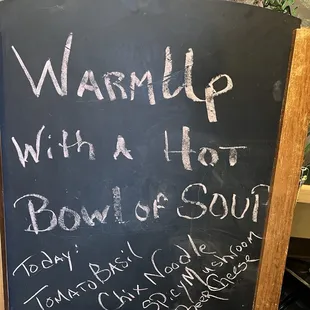 WARM UP
WITH A HOT
BOWL OF SOUP
TODAY:
TOMATO BASIL
CHIX NOODLE
SPICY MUSHROOM
BEER CHEESE